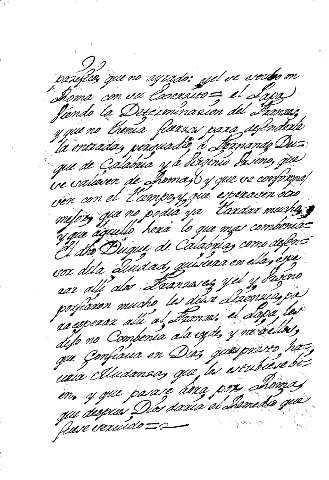 que no ayudado: y el se estubo en
Roma con su Concistorio = el Papa
Viendo la Determinacion del Frances,
y que no tenia fuerzas para defenderle
la entrada, persuadió, a Fernando Du-
que de Calabria y a Virginio Ursino, que
se saliesen de Roma, y que se conforma-
sen con el tiempo, y que esperasen otro
mejor, que no podia ya tardar mucho,
y que aquello hera lo que mas combenia =
El dho Duque de Calabria, como defen-
sor dela Ciudad, quisiera en ella, espe-
rar alli alos Franceses, y el y Virginio
porfiaron mucho les diese licencia, pa-
ra esperar alli al Frances, el Papa les
dijo no Combenia alla yda, y no a ellos,
que Confiava en Dios, que presto ha-
ria Mudanza, que les estubiese bi-
en, y que pasase hora por Roma,
que despues Dios daria el Remedio que
fuese servido =